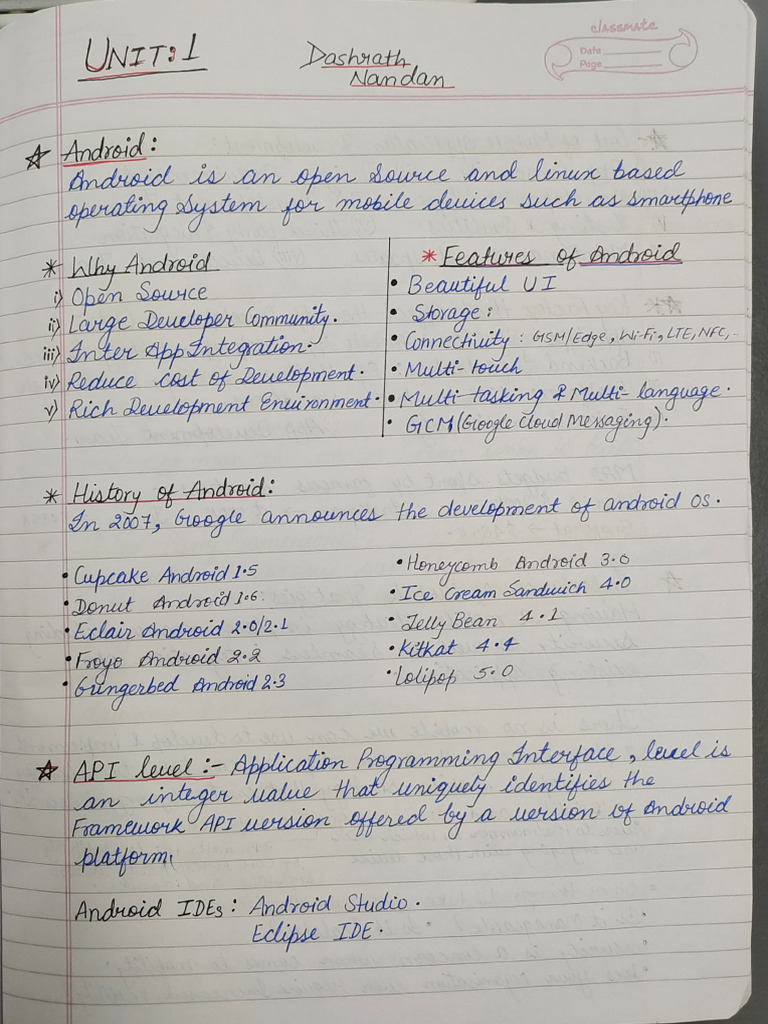 UNIT: 1
Dashrath
Nandan
classmate
Date
Page
Android:
Android is an open source and linux based
operating System for mobile devices such as smartphone
* Why Android
i) Open Source
ii) Large Developer Community.
iii) Inter App Integration.
iv) Reduce cost of Development.
v) Rich Development Environment.
* Features of Android
• Beautiful UI
• Storage:
• Connectivity : GSM/Edge, Wi-Fi, LTE, NFC, -
• Multi-touch
• Multi tasking & Multi-language.
• GCM (Google Cloud Messaging).
* History of Android:
In 2007, Google announces the development of android OS.
• Cupcake Android 1.5
• Donut Android 1.6.
• Eclair Android 2.0/2.1
• Froyo Android 2.2
• Gungerbed Android 2.3
• Honeycomb Android 3.0
• Ice Cream Sandwich 4.0
• Jelly Bean 4.1
• Kitkat 4.4
• Lolipop 5.0
API level :- Application Programming Interface, level is
an integer value that uniquely identifies the
Framework API version offered by a version of Android
platform.
Android IDEs : Android Studio.
Eclipse IDE.